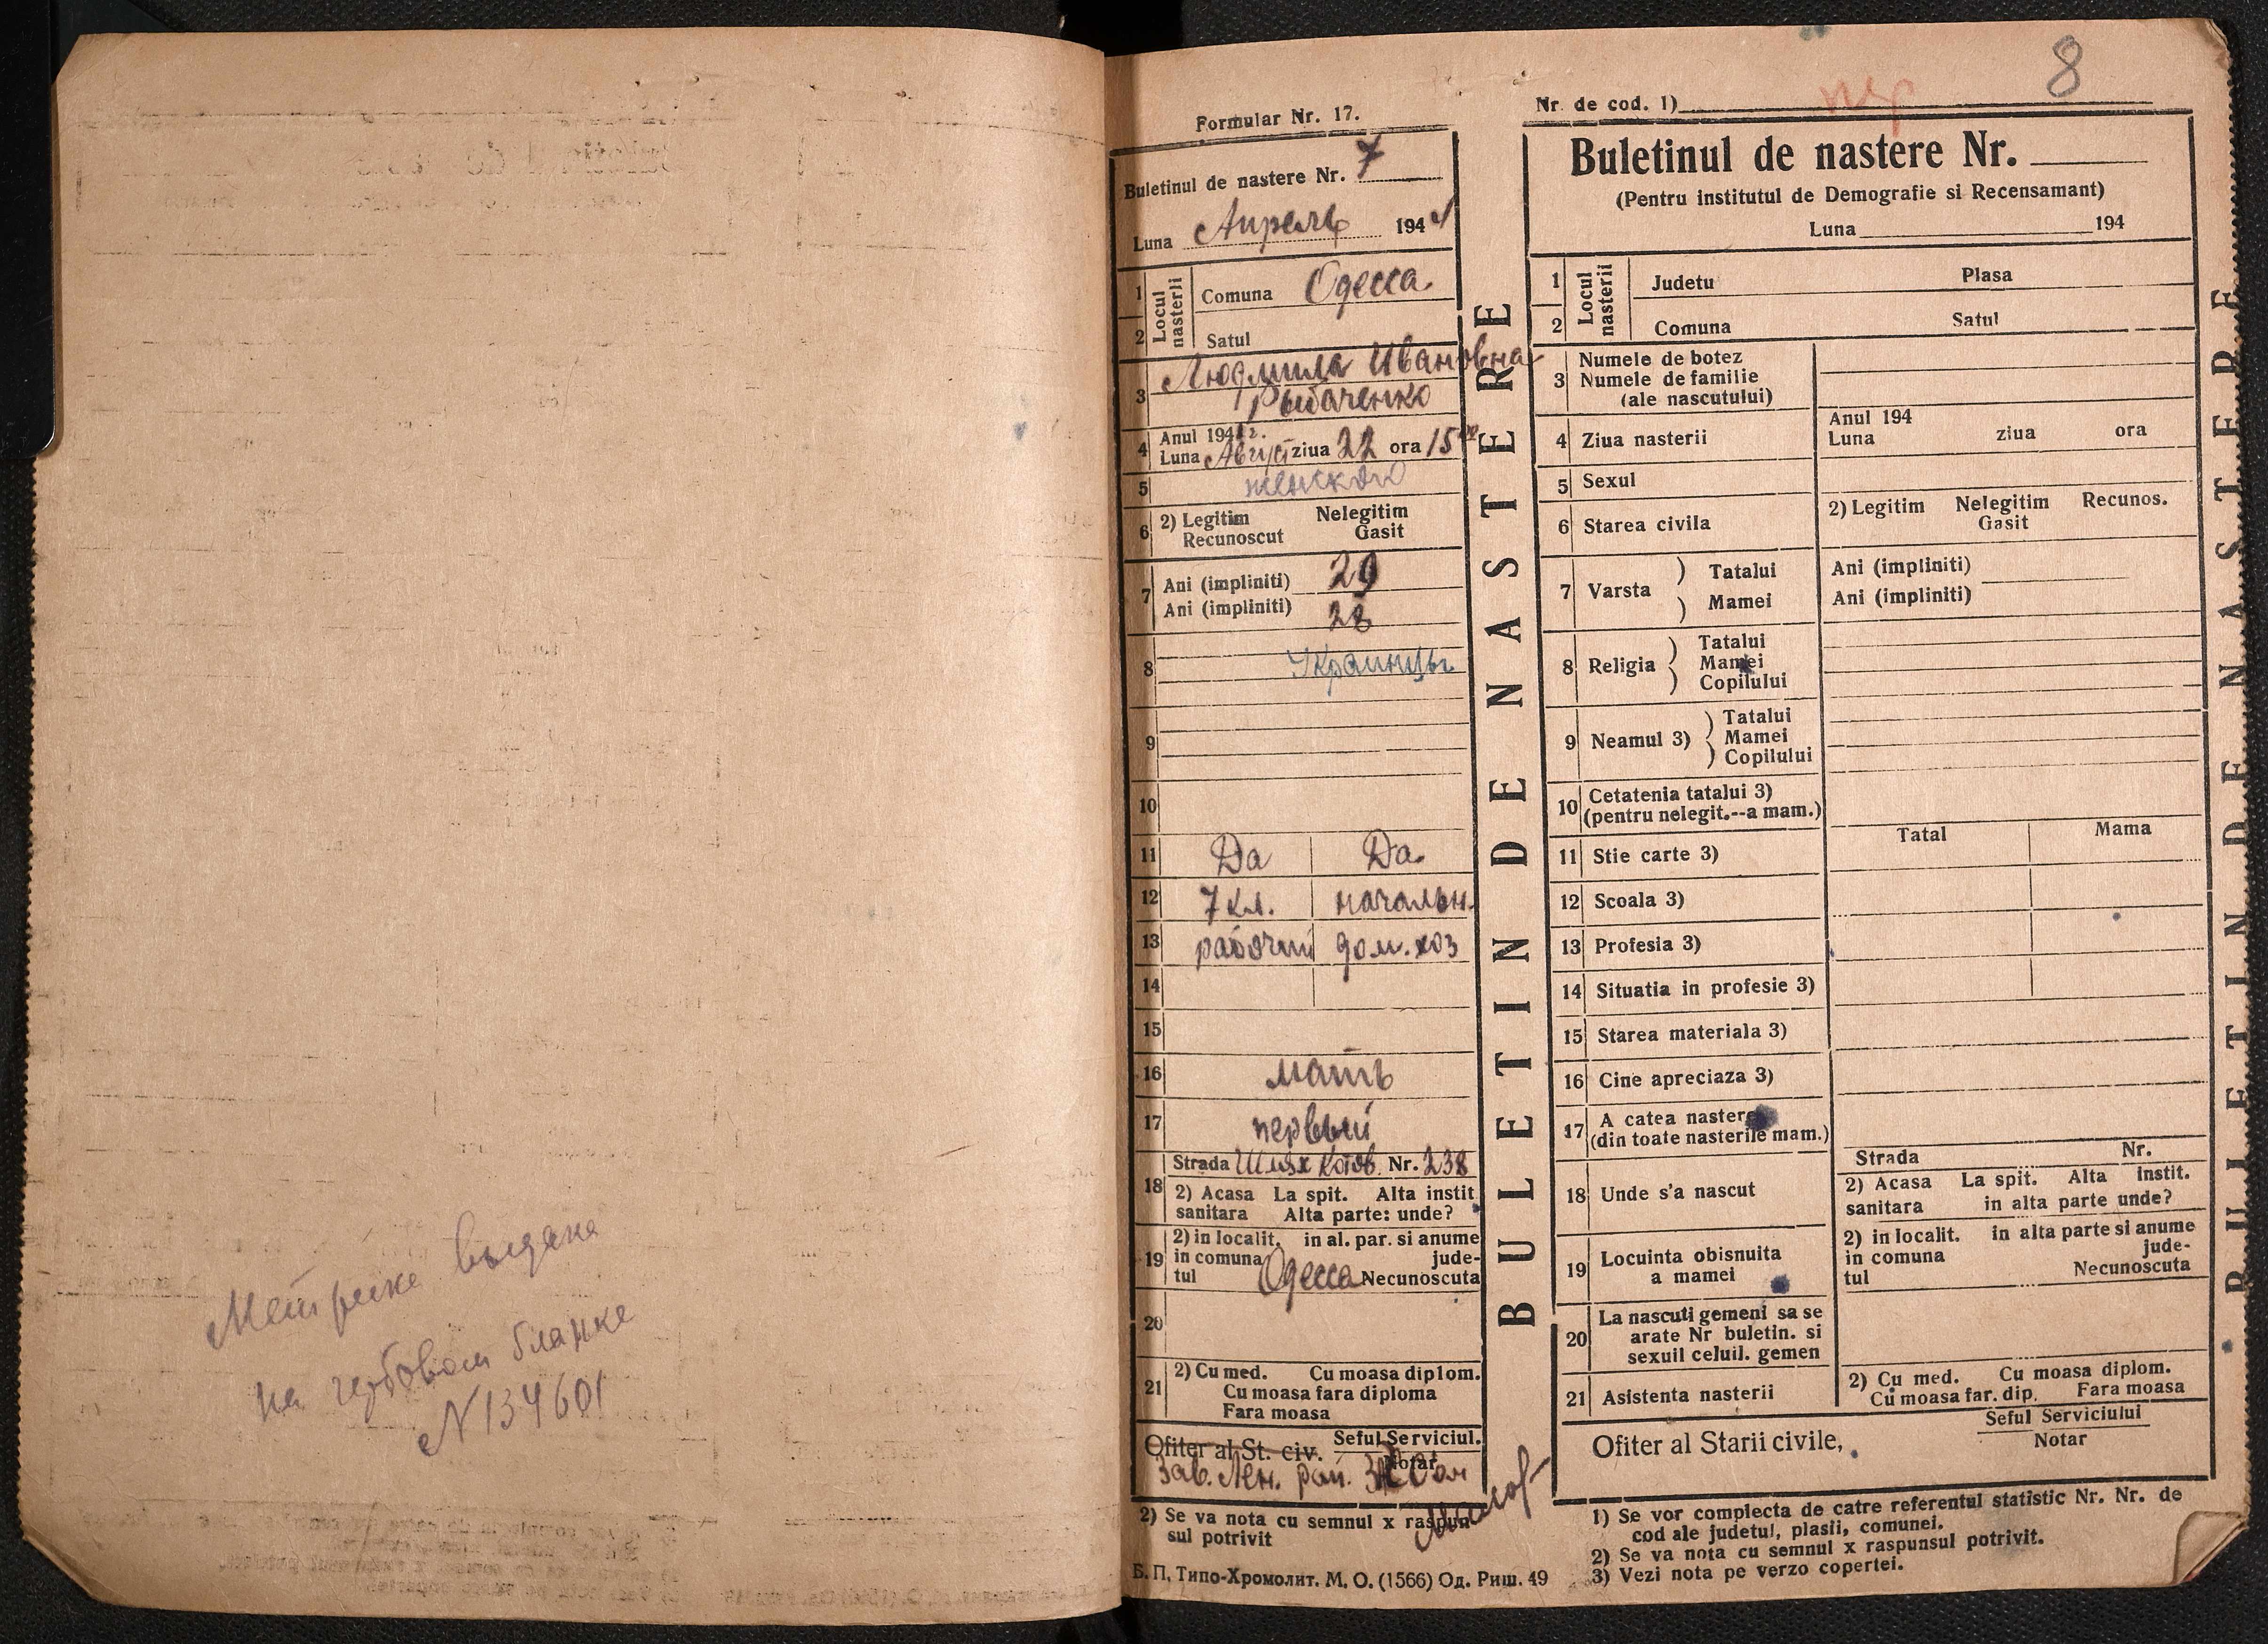 Метрика выдана
на гербовом бланке
N 134601
Formular Nr. 17.
Buletinul de nastere Nr. 7
Luna Апрель 1944
1 2 Locul nasterli
Comuna Одесса.
Satul
3 Людмила Ивановна
Рыбаченко
4 Anul 194 г.
Luna Август ziua 22 ora 15 00
5 женский
6 2) Legitim Nelegitim
Recunoscut Gasit
7 Ani (impliniti) 29
Ani (impliniti) 28
8 Украинцы
9
10
11 Да Да.
12 7 кл. начальн.
13 рабочий дом. хоз
14
15
16 мать
17 первый
18 Strada Шлях Котов. Nr. 238
2) Acasa La spit. Alta instit
sanitara Alta parte: unde?
19 2) in localit. in al. par. si anume
in comuna jude-
tul Одесса Necunoscuta
20
21 2) Cu med. Cu moasa diplom.
Cu moasa fara diploma
Fara moasa
Ofiter al St. civ. Seful Serviciul.
Notar
Зав. Лен. рай.
2) Se va nota cu semnul x raspun
sul potrivit
Б. П. Типо-Хромолит. М. О. (1566) Од. Риш. 49
BULETIN DE NASTERE
Nr. de cod. 1)
8
Buletinul de nastere Nr.
(Pentru institutul de Demografie si Recensamant)
Luna 194
1 2 Locul nasterii
Judetu Plasa
Comuna Satul
3 Numele de botez
Numele de familie
(ale nascutului)
4 Ziua nasterii
Anul 194
Luna ziua ora
5 Sexul
6 Starea civila
2) Legitim Nelegitim Recunos.
Gasit
7 Varsta Tatalui Ani (impliniti)
Mamei Ani (impliniti)
8 Religia Tatalui
Mamei
Copilului
9 Neamul 3) Tatalui
Mamei
Copilului
10 Cetatenia tatalui 3)
(pentru nelegit.--a mam.)
Tatal Mama
11 Stie carte 3)
12 Scoala 3)
13 Profesia 3)
14 Situatia in profesie 3)
15 Starea materiala 3)
16 Cine apreciaza 3)
17 A catea nastere
(din toate nasterile mam.)
18 Unde s'a nascut
Strada Nr.
2) Acasa La spit. Alta instit.
sanitara in alta parte unde?
19 Locuinta obisnuita
a mamei
2) in localit. in alta parte si anume
in comuna jude-
tul Necunoscuta
20 La nascuti gemeni sa se
arate Nr buletin. si
sexuil celuil. gemen
21 Asistenta nasterii
2) Cu med. Cu moasa diplom.
Cu moasa far. dip. Fara moasa
Ofiter al Starii civile,
Seful Serviciului
Notar
1) Se vor complecta de catre referentul statistic Nr. Nr. de
cod ale judetul, plasii, comunei.
2) Se va nota cu semnul x raspunsul potrivit.
3) Vezi nota pe verzo copertei.
BULETIN DE NASTERE